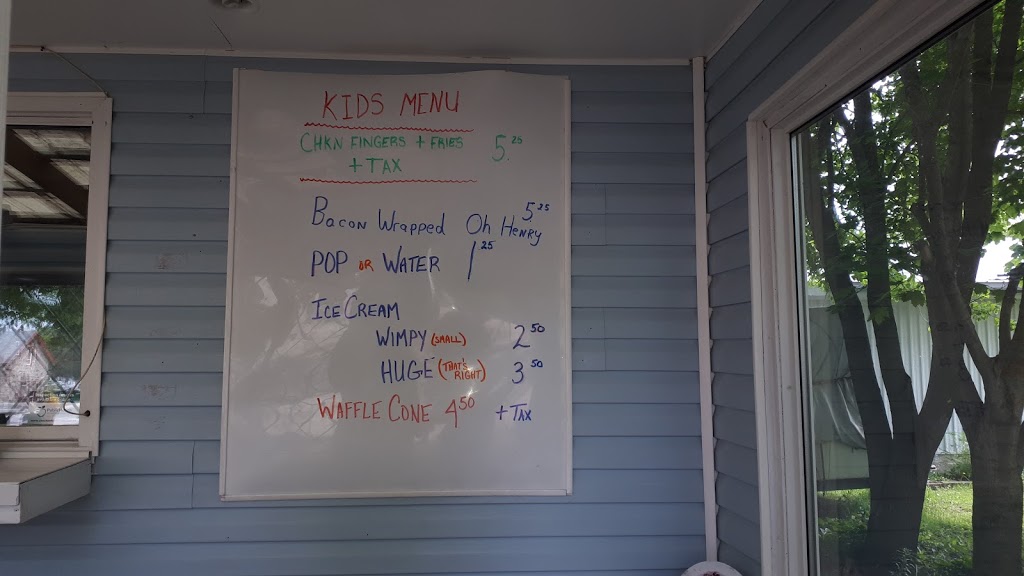 KIDS MENU
CHKN FINGERS + FRIES 5.25
+ TAX
Bacon Wrapped Oh Henry 5 25
POP OR WATER 1 25
ICE CREAM
WIMPY (SMALL) 2 50
HUGE (THAT'S RIGHT) 3 50
WAFFLE CONE 4 50 + TAX